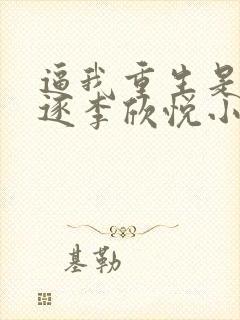 逼我重生是
逐李欣悦小
基勒